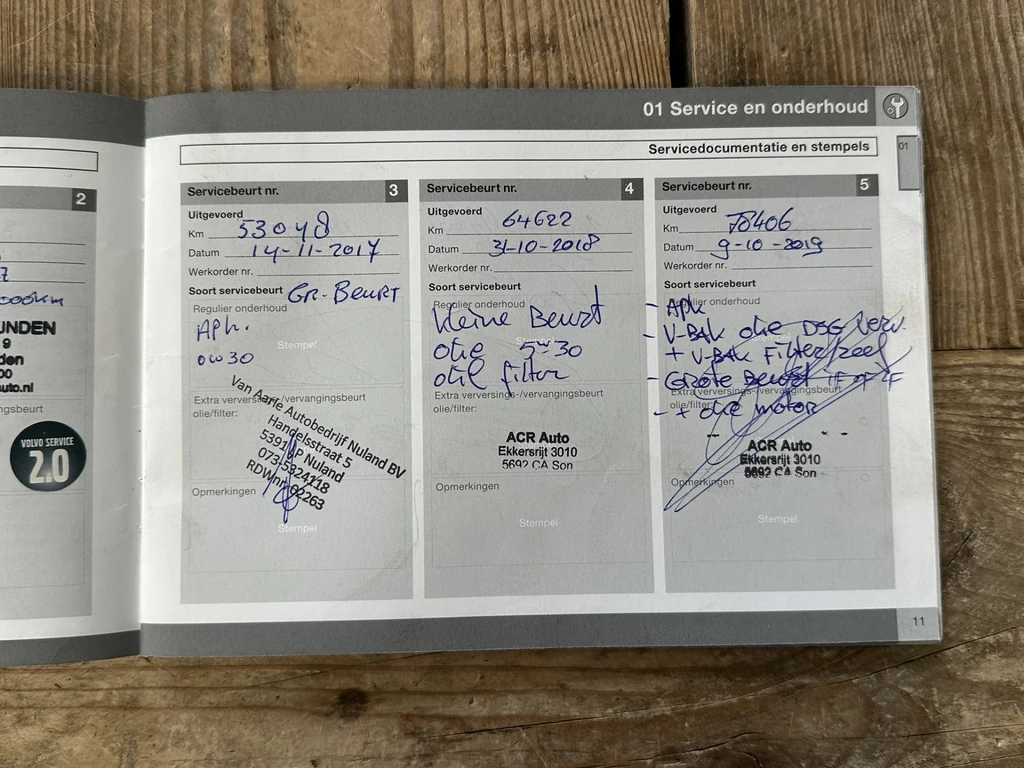 01 Service en onderhoud
01
Servicedocumentatie en stempels
2
7
000km
UNDEN
9
den
00
auto.nl
ngsbeurt
VOLVO SERVICE
2.0
Servicebeurt nr. 3
Uitgevoerd
Km 53048
Datum 14-11-2017
Werkorder nr.
Soort servicebeurt GR-BEURT
Regulier onderhoud
APK.
Stempel
0W30
Extra verversings-/vervangingsbeurt
olie/filter:
Van Aarle Autobedrijf Nuland BV
Handelsstraat 5
5391 P Nuland
073-5324118
RDWnr. 92263
Opmerkingen
Stempel
Servicebeurt nr. 4
Uitgevoerd
Km 64622
Datum 31-10-2018
Werkorder nr.
Soort servicebeurt
Regulier onderhoud
Kleine Beurt
olie 5W30
olie filter
Extra verversings-/vervangingsbeurt
olie/filter:
ACR Auto
Ekkersrijt 3010
5692 CA Son
Opmerkingen
Stempel
Servicebeurt nr. 5
Uitgevoerd
Km 78406
Datum 9-10-2019
Werkorder nr.
Soort servicebeurt
Regulier onderhoud
- APK
- V-Bak olie DSG Verv.
+ V-Bak Filter
- Grote Beurt
Extra verversings-/vervangingsbeurt
olie/filter:
- + olie motor
ACR Auto
Ekkersrijt 3010
5692 CA Son
Opmerkingen
Stempel
11